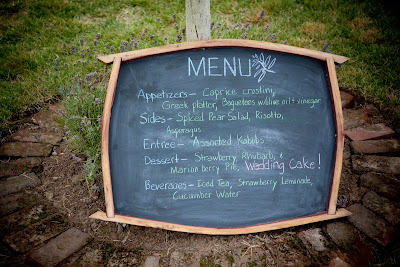 MENU
Appetizers - Caprice crostini,
Greek platter, Baguettes w/olive oil + vinegar
Sides - Spiced Pear Salad, Risotto,
Asparagus
Entree - Assorted Kabobs
Dessert - Strawberry, Rhubarb, &
Marionberry Pie, & Wedding Cake!
Beverages - Iced Tea, Strawberry Lemonade,
Cucumber Water